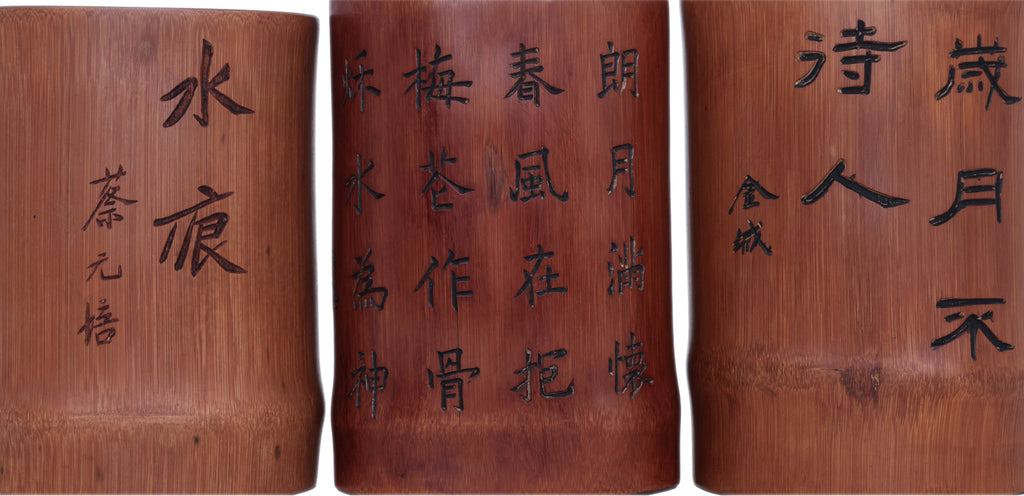 水痕
蔡元培
朗月滿懷
春風在抱
梅花作骨
秌水為神
歲月不
待人
金城